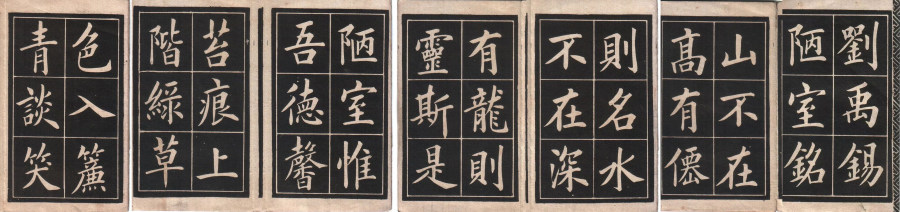 劉禹錫
陋室銘
山不在
髙有僊
則名水
不在深
有龍則
靈斯是
陋室惟
吾德馨
苔痕上
階綠草
色入簾
青談笑